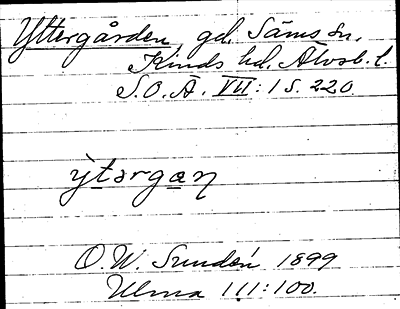 Yttergården gd. Säms sn.
Kinds hd. Älvsb. l.
S.O.Ä. VII:1 s. 220.
ỳtərgan
O.W. Sundén 1899
Ulma 111:100.